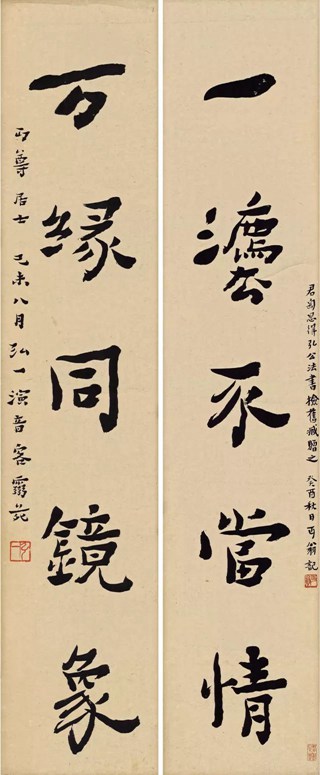 君匋思得弘公法書檢舊臧贈之 癸酉秋日丏翁記
一灋不當情
万緣同鏡象
丏尊居士 己未八月 弘一演音客靈苑